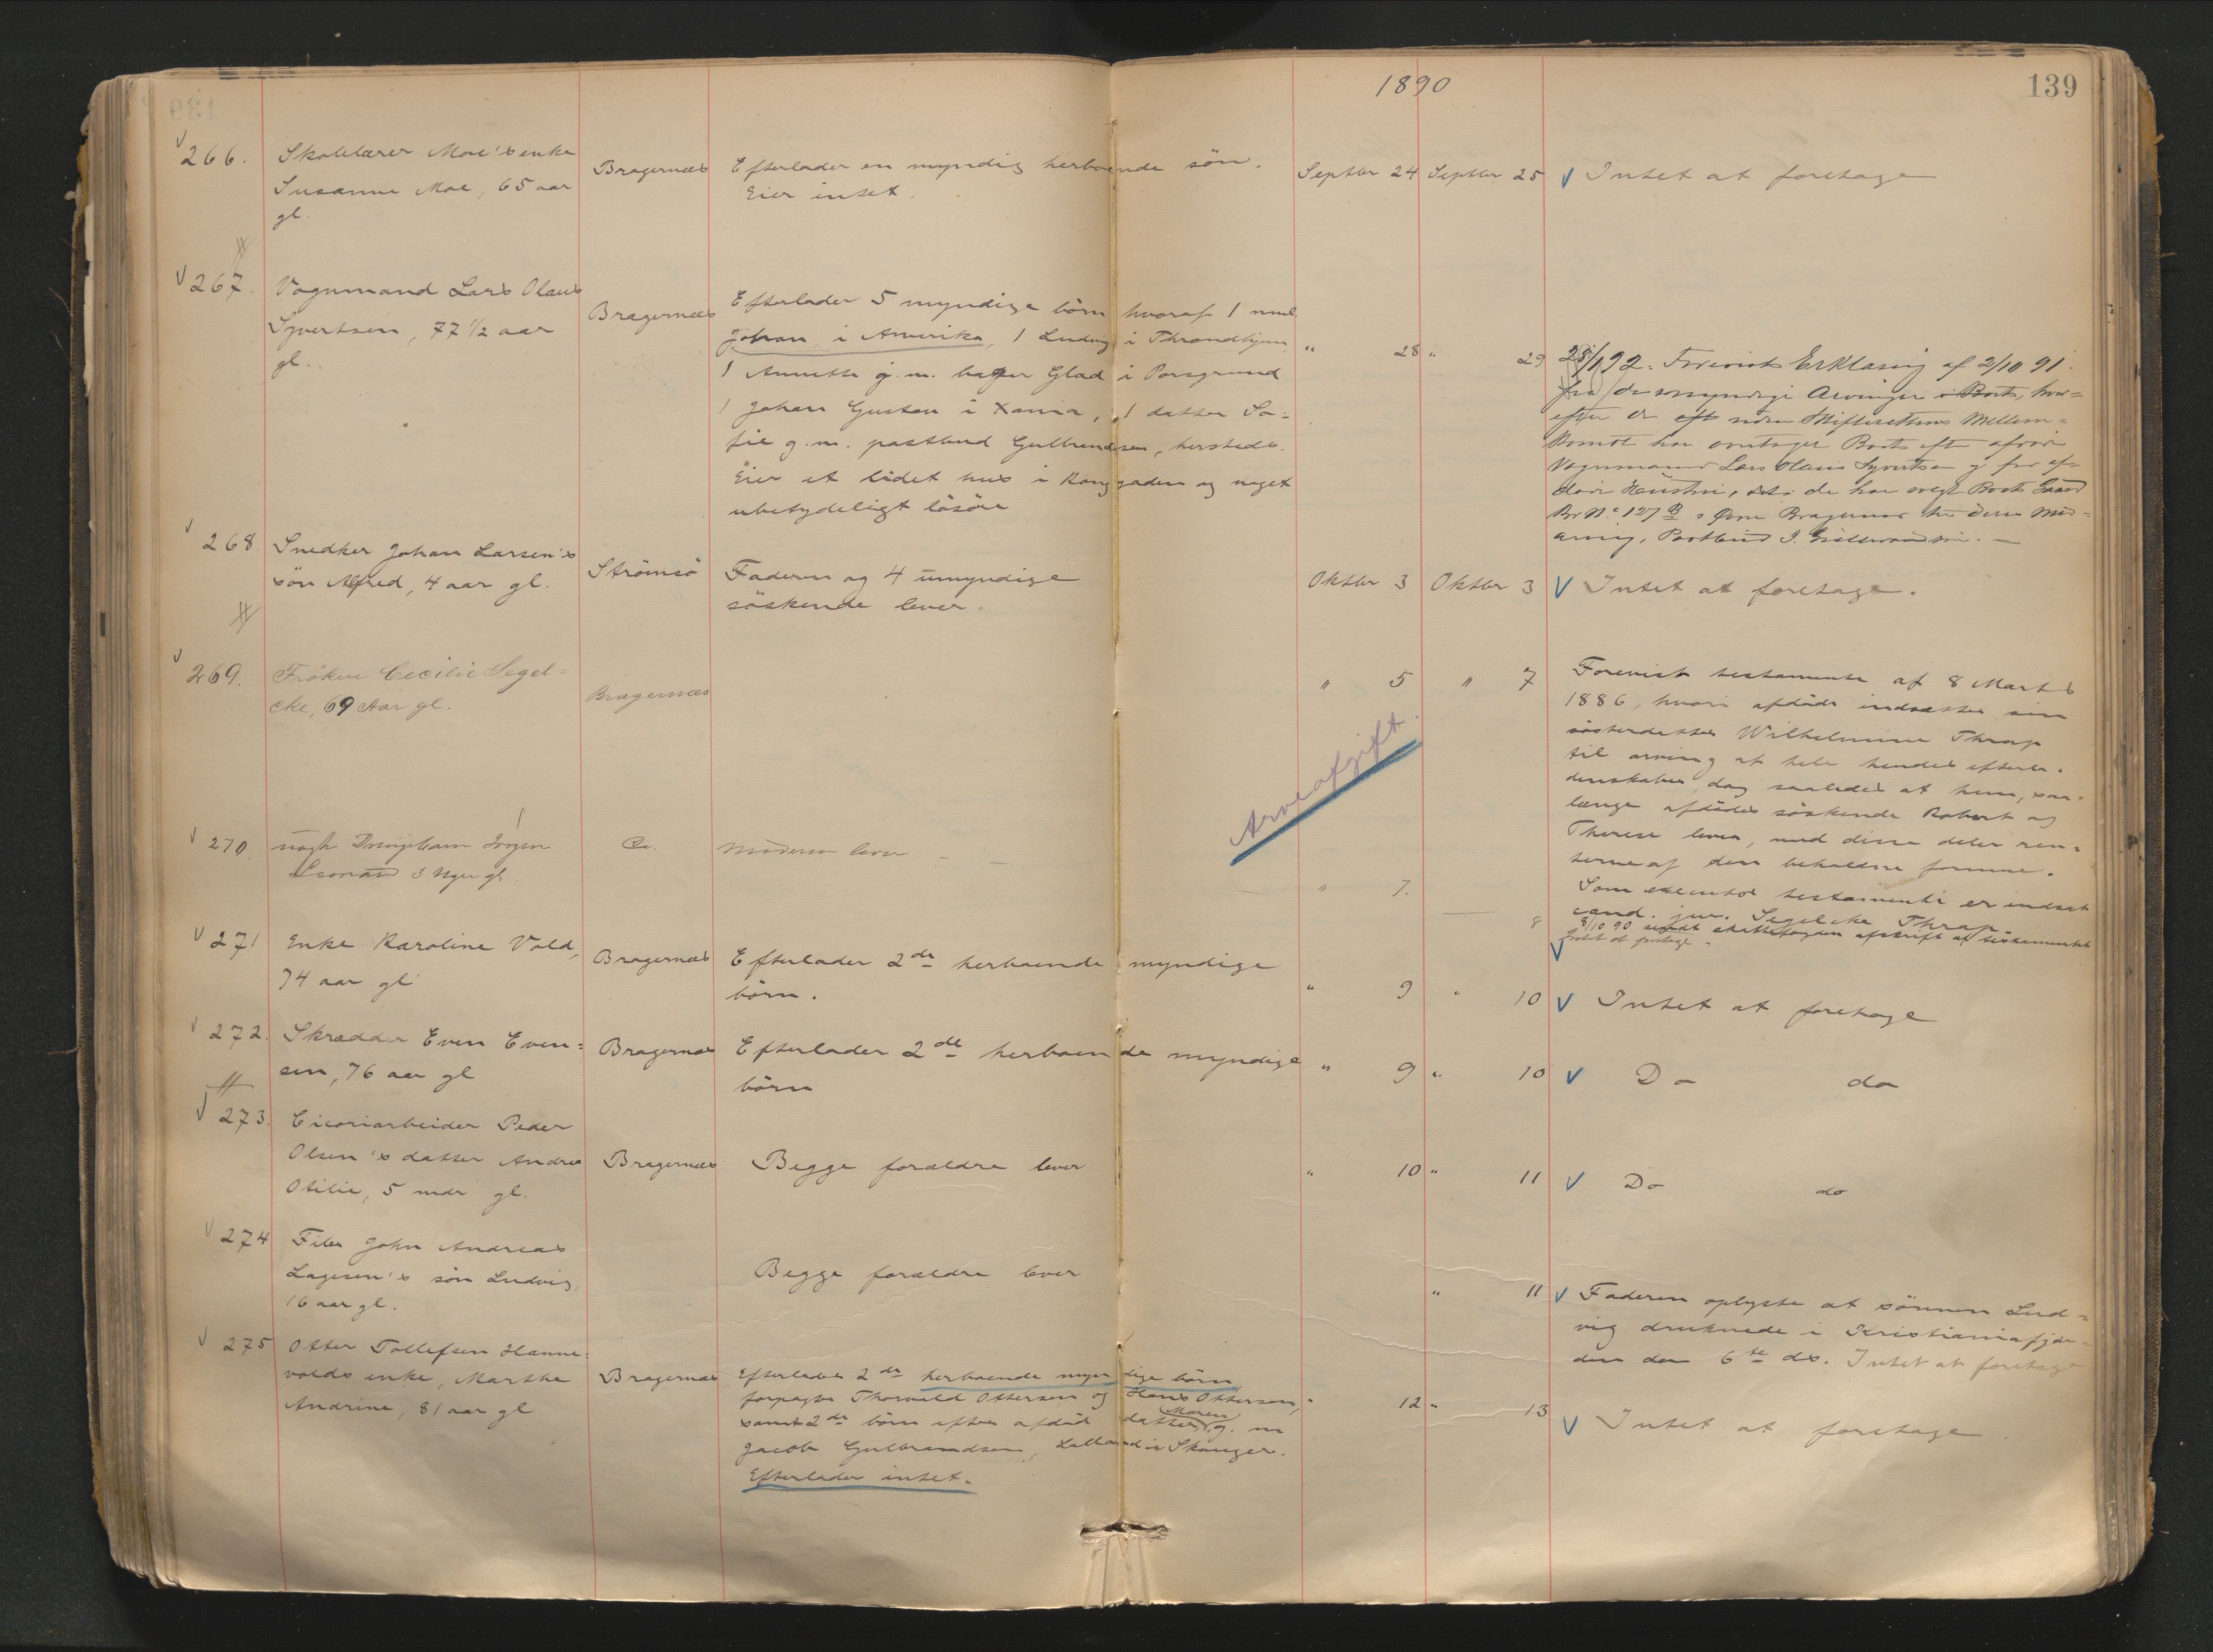 1890
139
266.
Skolelærer Moe's enke
Susanne Moe, 65 aar
gl.
Bragernæs
Efterlader en myndig herboende søn.
Eier intet.
Septbr 24
Septbr 25
Intet at foretage
267.
Vognmand Lars Olaus
Syvertsen, 77 1/2 aar
gl.
Bragernæs
Efterlader 5 myndige børn hvoraf 1 nml.
Johan i Amerika, 1 Ludvig i Throndhjem
1 Annette g. m. bager Glad i Porsgrund
1 Johan Gustav i Xania, 1 datter So-
fie g. m. postbud Gulbrandsen, hersteds.
Eier et lidet hus i Konggaden og noget
ubetydeligt løsøre
" 28
" 29
28/1 92. Forevist Erklæring af 2/10 91
fra de myndige Arvinger i Boet, hvor-
efter de uden Skifterettens Mellem-
komst har overtaget Boet efter afdøde
Vognmand Lars Olaus Syvertsen og før af-
døde Hustru, de har solgt Boets Gaard
Br. No. 127 B i Øvre Bragernæs til deres Med-
arving, Postbud J. Gulbrandsen. —
268.
Snedker Johan Larsen's
søn Alfred, 4 aar gl.
Strømsø
Faderen og 4 umyndige
søskende lever.
Oktbr 3
Oktbr 3
Intet at foretage.
269.
Frøken Cecilie Segel-
cke, 69 Aar gl.
Bragernæs
" 5
" 7
Forevist testamente af 8 Marts
1886, hvori afdøde indsætter sin
søsterdatter Wilhelmine Thrap
til arving af hele hendes efterla-
denskaber, dog saaledes at hun, saa-
længe afdødes søskende Robert og
Therese lever, med disse deler ren-
terne af den beholdne formue.
Som executor testamenti er indsat
cand. jur. Segelcke Thrap.
8/10 90 sendt skattefogden afskrift af testamentet
Arveafgift.
270.
uægte Drengebarn Jørgen
Leonard 3 Uger gl.
Do.
Moderen lever
" 7.
8
Intet at foretage
271
Enke Karoline Vold,
74 aar gl
Bragernæs
Efterlader 2de herboende myndige
børn.
" 9
" 10
Intet at foretage
272.
Skrædder Even Even-
sen, 76 aar gl
Bragernæs
Efterlader 2de herboende myndige
børn
" 9
" 10
Do do
273.
Cicoriarbeider Peder
Olsen's datter Andrea
Otilie, 5 mdr gl.
Bragernæs
Begge forældre lever
" 10
" 11
Do do
274
Filer John Andreas
Lagesen's søn Ludvig,
16 aar gl.
Begge forældre lever
" 11
Faderen oplyste at sønnen Lud-
vig druknede i Kristianiafjor-
den den 6te ds. Intet at foretage
275
Otter Tollefsen Hanne-
volds enke, Marthe
Andrine, 81 aar gl
Bragernæs
Efterlader 2de herboende myndige børn
forpagter Thorvald Ottersen og Hans Ottersen,
samt 2de børn efter afdød datter Maren g. m
Jacob Gulbrandsen, i Skauger.
Efterlader intet.
" 12
" 13
Intet at foretage.